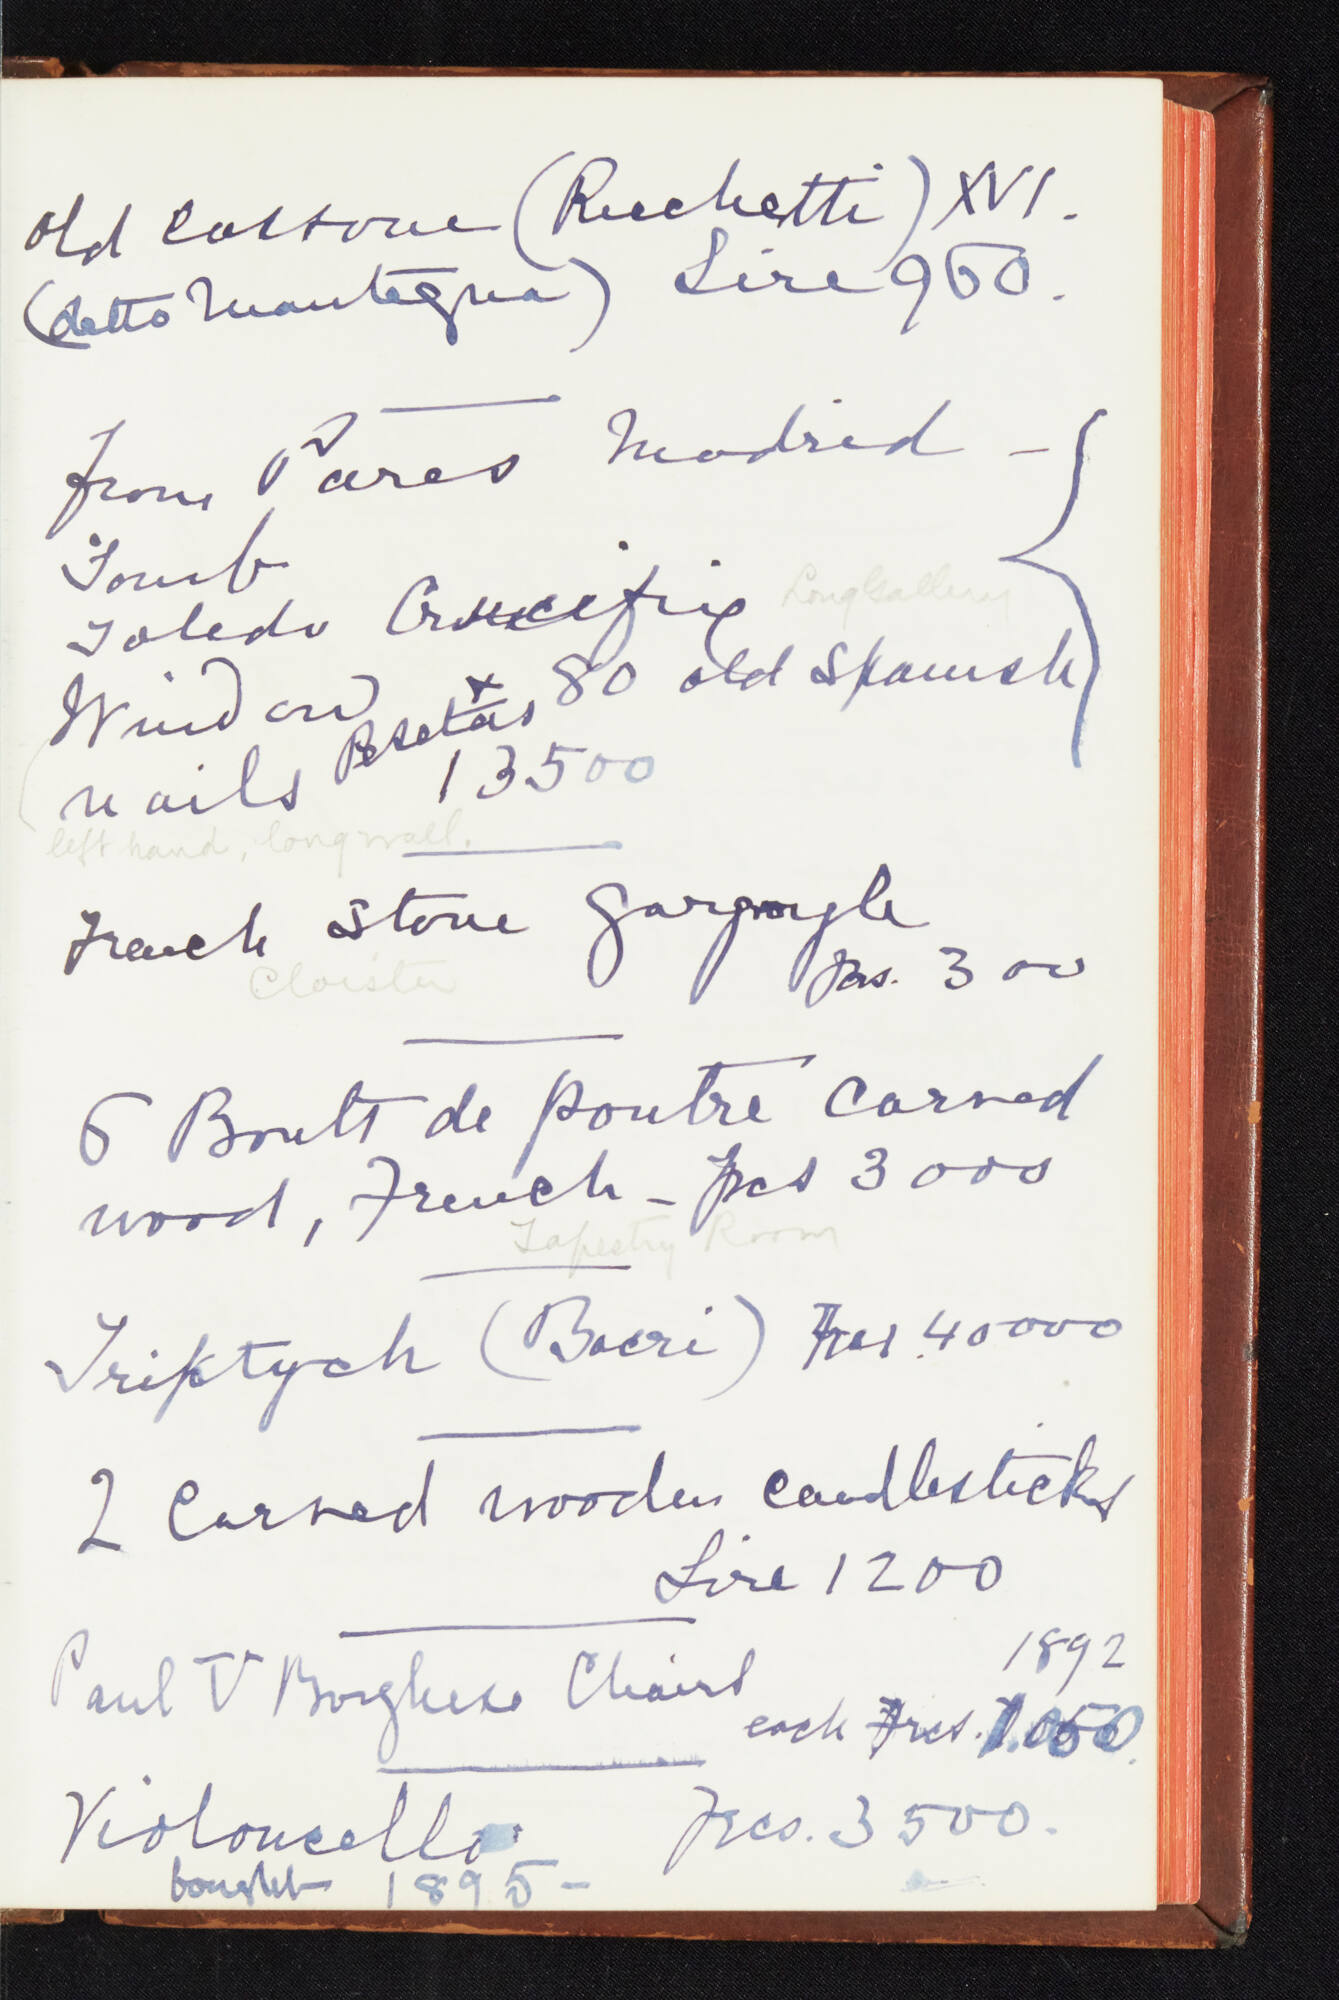 old cassone (Ruchetti) XVI.
(detto Mantegna) Lire 950.
from Pares Madrid -
Tomb
Toledo Crucifix Long Gallery
Window + 80 old Spanish
nails Pesetas 13500
left hand, long wall.
French stone gargoyle
Frs. 300
Cloister
6 Bouts de poutre carved
wood, French - Frcs 3000
Tapestry Room
Triptych (Bacri) Frcs 40000
2 Carved wooden candlesticks
Lire 1200
Paul V Borghese Chairs 1892
each Frcs. 1.050.
Violoncello Frcs. 3500.
bought 1895-